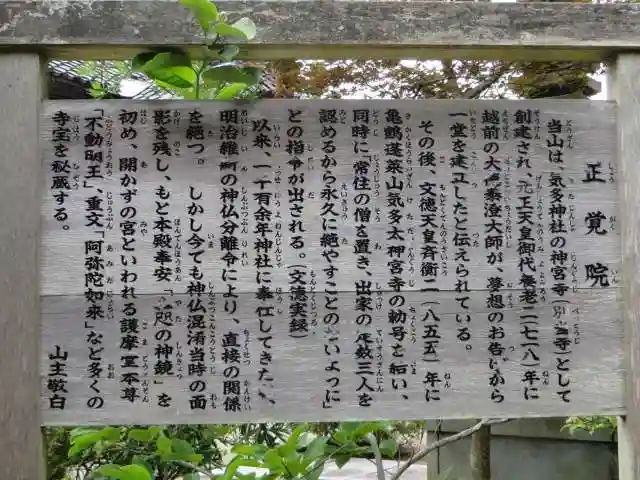 正覚院
当山は、気多神社の神宮寺(別当寺)として
創建され、元正天皇御代養老二(七一八)年に
越前の大徳泰澄大師が、夢想のお告げから
一堂を建立したと伝えられている。
その後、文徳天皇斉衡二(八五五)年に
亀鶴蓬莱山気多太神宮寺の勅号を賜い、
同時に「常住の僧を置き、出家の度数三人を
認めるから永久に絶やすことのないように」
との指令が出される。(文徳実録)
以来、一千有余年神社に奉仕してきたが、
明治維新の神仏分離令により、直接の関係
を絶つ。しかし今でも神仏混淆当時の面
影を残し、もと本殿奉安、「八咫の神鏡」を
初め、開かずの宮といわれる護摩堂本尊
「不動明王」、重文「阿弥陀如来」など多くの
寺宝を秘蔵する。
山主敬白